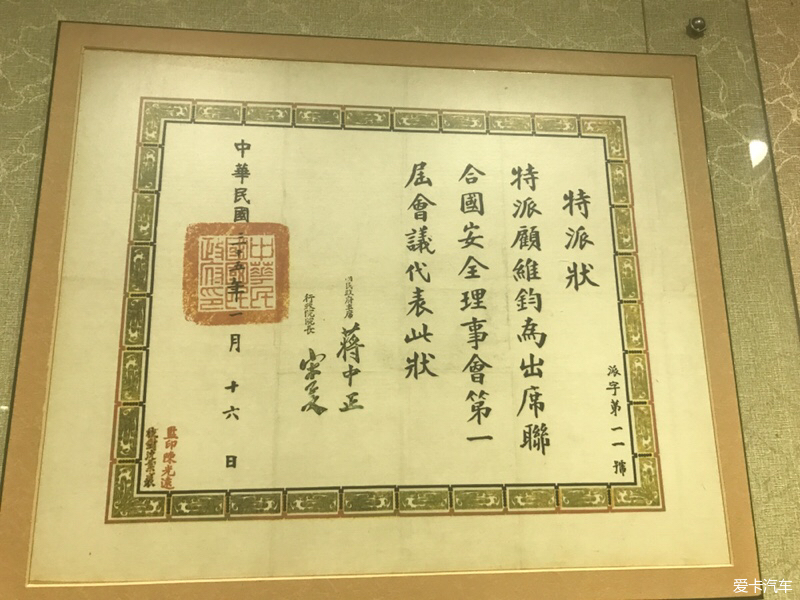 特派狀
特派顧維鈞為出席聯
合國安全理事會第一
屆會議代表此狀
國民政府主席 蔣中正
行政院院長 宋子文
中華民國三十五年一月十六日
中華民國國民政府印
派字第一一號
監印陳光遠
爱卡汽车